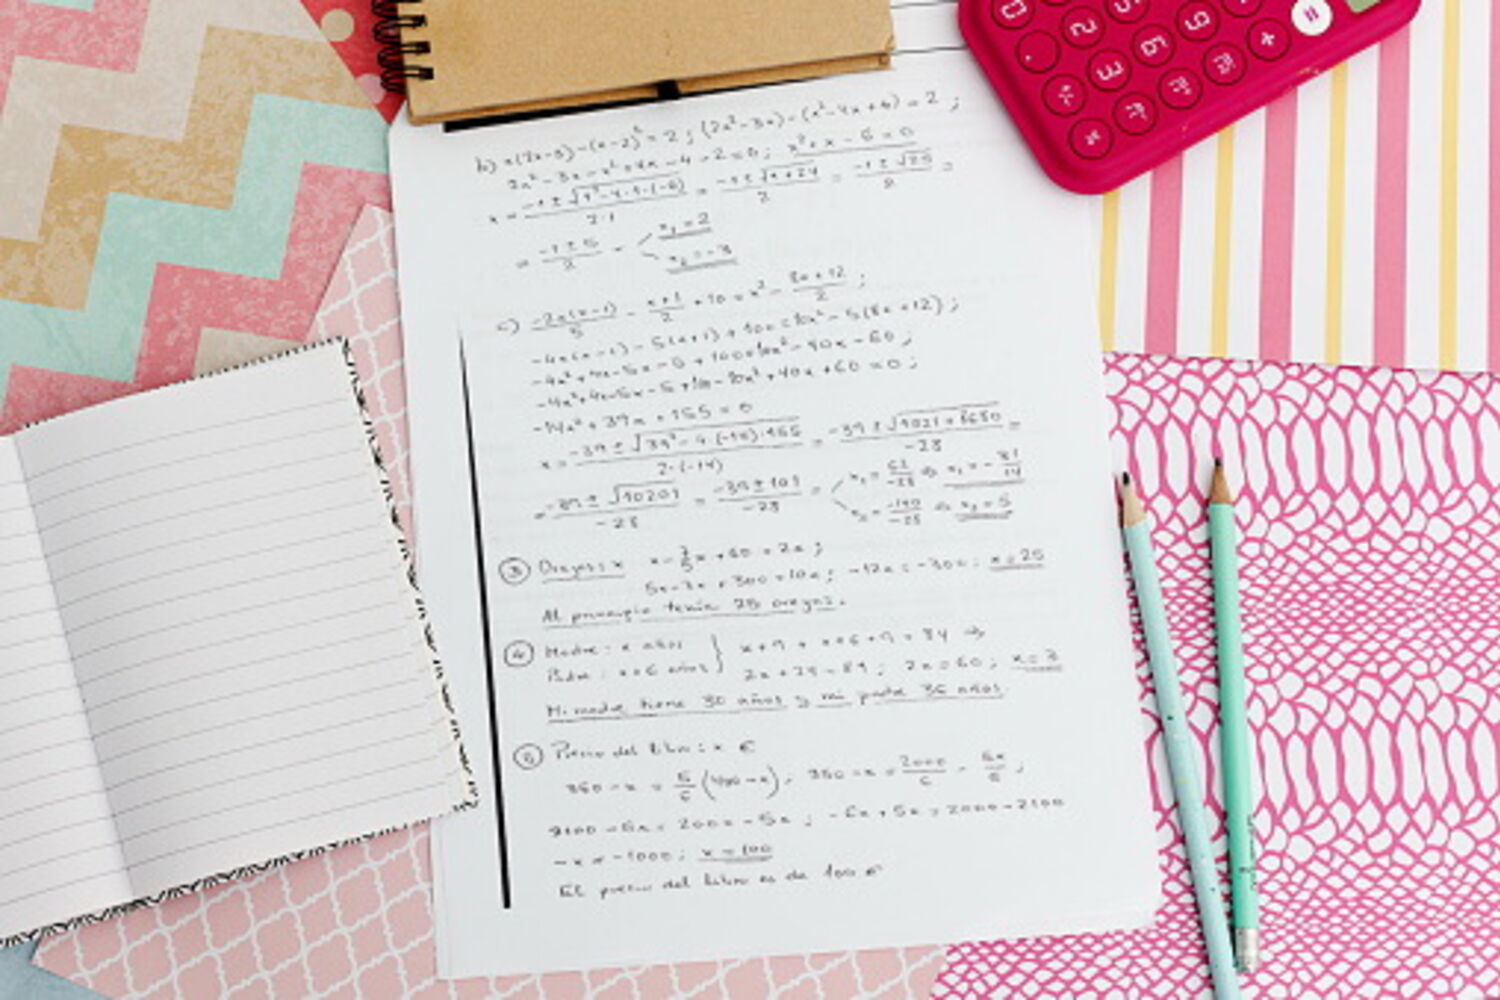 b) x(2x-3)-(x-2)²=2; (2x²-3x)-(x²-4x+4)=2;
2x²-3x-x²+4x-4-2=0; x²+x-6=0
x = (-1±√(1²-4·1·(-6)))/(2·1) = (-1±√(1+24))/2 = (-1±√25)/2 =
= (-1±5)/2 = x₁=2
x₂=-3
c) -2x(x-1)/5 - (x+1)/2 + 10 = x² - (8x+12)/2;
-4x(x-1)-5(x+1)+100=10x²-5(8x+12);
-4x²+4x-5x-5+100=10x²-40x-60;
-4x²+4x-5x-5+100-10x²+40x+60=0;
-14x²+39x+155=0
x = (-39±√(39²-4·(-14)·155))/(2·(-14)) = (-39±√(1521+8680))/-28 =
= (-39±√10201)/-28 = (-39±101)/-28 = x₁ = 62/-28 ⇒ x₁ = -31/14
x₂ = -140/-28 ⇒ x₂=5
③ Ovejas: x x-2/5x+60=2x;
5x-2x+300=10x; -12x=-300; x=25
Al principio tenía 25 ovejas.
④ Madre: x años x+9+x+6+9=84 ⇒
Padre: x+6 años 2x+24=84; 2x=60; x=3
Mi madre tiene 30 años y mi padre 36 años.
⑤ Precio del libro: x €
350-x = 5/6(400-x); 350-x = 2000/6 - 5x/6;
2100-6x=2000-5x; -6x+5x=2000-2100
-x=-1000; x=100
El precio del libro es de 100 €